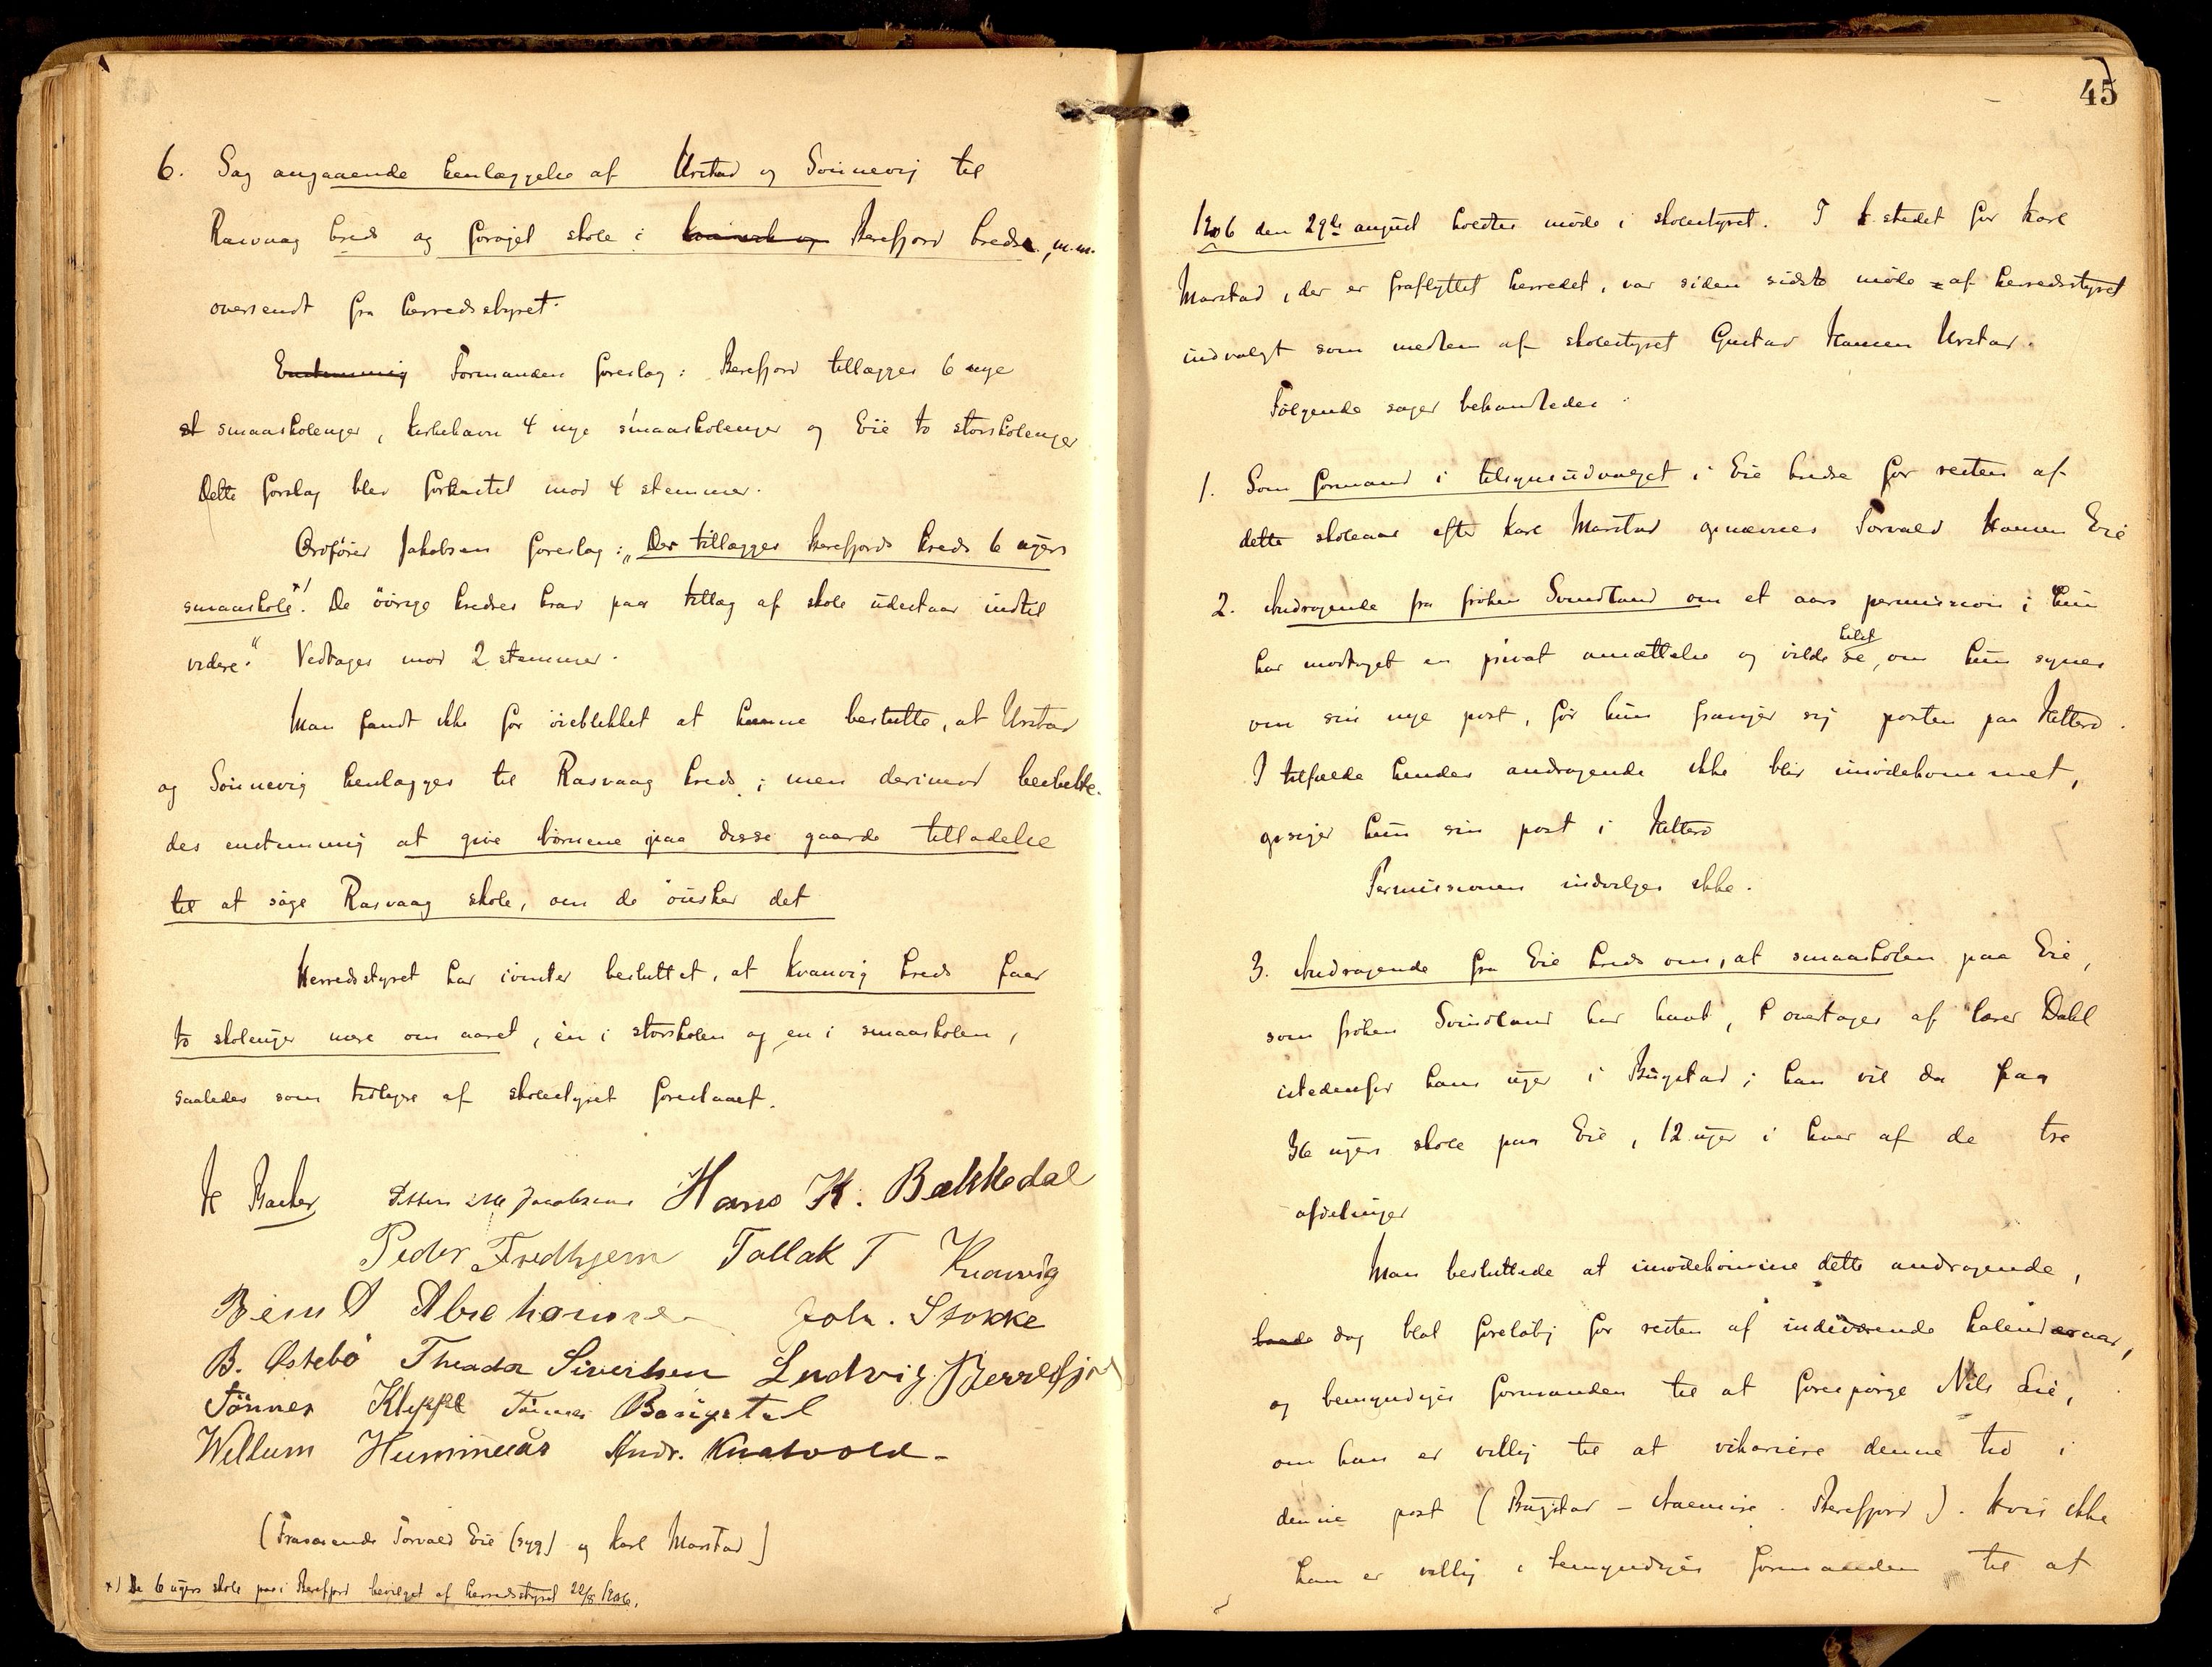 6. Sag angaaende henlæggelse af Urstad og Sönnevig til
Rasvaag kreds og forøget skole i Kvanvik og Berefjord kreds, m.m.
oversendt fra herredsstyret.
Enstemmig Formanden foreslog: Berefjord tillægges 6 nye
st smaaskoleuger, Kirkehavn 4 nye smaaskoleuger og Eie to storskoleuger
Dette forslag blev forkastet mod 4 stemmer.
Ordfører Jakobsen foreslog: „Der tillægges Berefjords kreds 6 ugers
smaaskole x). De övrige kredses krav paa tillæg af skole udestaar indtil
videre." Vedtages mod 2 stemmer.
Man fandt ikke for öieblikket at kunne beslutte, at Urstad
og Sönnevig henlægges til Rasvaag kreds; men derimod besluttedes
des enstemmig at give börnene paa disse gaarde tilladelse
til at söge Rasvaag skole, om de önsker det
Herredsstyret har ivinter besluttet, at Kvanvig kreds faar
to skoleuger mere om aaret, én i storskolen og en i smaaskolen,
saaledes som tidligere af skolestyret foreslaaet.
K Barker Hans K. Bækkedal
Peder Fredhjem Tallak T Kvanvig
Bernt A Abrahamsen Joh. Stokke
B. Østebö Theodor Sivertsen Ludvig Berrefjord
Tönnes Kleppe Tönnes Bougstad
Willum Hummeaas Andr. Knatvold
(Fraværende Torvald Eie (syg) og Karl Marstad)
x) De 6 ugers skole paa i Berefjord bevilget af herredsstyret 22/8 1906.
45
1906 den 29de august holdtes möde i skolestyret. I k stedet for Karl
Marstad, der er fraflyttet herredet, var siden sidste möde af herredsstyret
indvalgt som medlem af skolestyret Gustav Hansen Urstad.
Fölgende sager behandledes:
1. Som formand i tilsynsudvalget i Eie kreds for resten af
dette skoleaar efter Karl Marstad opnævnes Torvald Hansen Eie
2. Andragende fra fröken Svindland om et aars permission; hun
har modtaget en privat ansættelse og vilde helst se, om hun synes
om sin nye post, för hun frasiger sig posten paa Hitterö.
I tilfælde hendes andragende ikke blir imödekommet,
opsiger hun sin post i Hitterö
Permissionen indvilges ikke.
3. Andragende fra Eie kreds om, at smaaskolen paa Eie,
som fröken Svindland har havt, overtages af lærer Dahl
istedenfor hans uger i Bugstad; han vil da faa
36 ugers skole paa Eie, 12 uger i hver af de tre
afdelinger
Man besluttede at imödekomme dette andragende,
baade dog blot forelöbig for resten af indeværende kalenderaar,
og bemyndiges formanden til at forespörge Nils Eie,
om han er villig til at vikariere denne tid i
denne post (Bugstad – Berefjord). Hvis ikke
han er villig, bemyndiges formanden til at